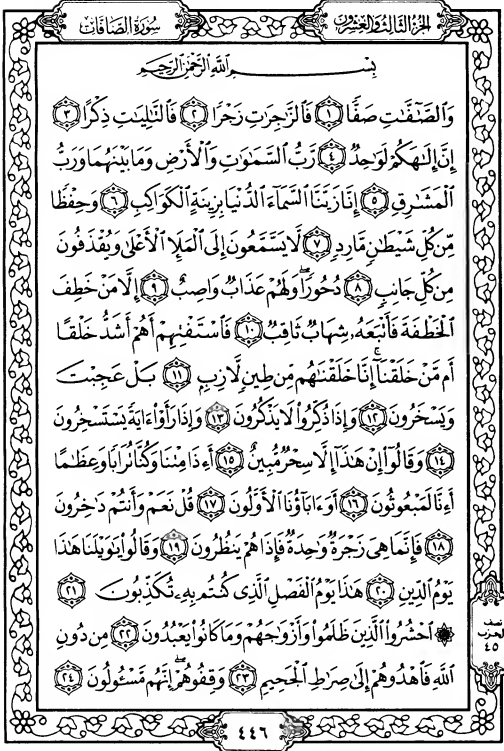 سُورَةُ الصَّافَّاتِ
الجُزْءُ الثَّالِثُ وَالعِشْرُونَ
بِسْمِ اللَّهِ الرَّحْمَٰنِ الرَّحِيمِ
وَالصَّٰٓفَّٰتِ صَفًّا ١ فَالزَّٰجِرَٰتِ زَجْرًا ٢ فَالتَّٰلِيَٰتِ ذِكْرًا ٣
إِنَّ إِلَٰهَكُمْ لَوَٰحِدٌ ٤ رَّبُّ السَّمَٰوَٰتِ وَالْأَرْضِ وَمَا بَيْنَهُمَا وَرَبُّ
الْمَشَٰرِقِ ٥ إِنَّا زَيَّنَّا السَّمَآءَ الدُّنْيَا بِزِينَةٍ الْكَوَاكِبِ ٦ وَحِفْظًا
مِّن كُلِّ شَيْطَٰنٍ مَّارِدٍ ٧ لَّا يَسَّمَّعُونَ إِلَى الْمَلَإِ الْأَعْلَىٰ وَيُقْذَفُونَ
مِن كُلِّ جَانِبٍ ٨ دُحُورًا ۖ وَلَهُمْ عَذَابٌ وَاصِبٌ ٩ إِلَّا مَنْ خَطِفَ
الْخَطْفَةَ فَأَتْبَعَهُۥ شِهَابٌ ثَاقِبٌ ١٠ فَاسْتَفْتِهِمْ أَهُمْ أَشَدُّ خَلْقًا
أَم مَّنْ خَلَقْنَآ ۚ إِنَّا خَلَقْنَٰهُم مِّن طِينٍ لَّازِبٍ ١١ بَلْ عَجِبْتَ
وَيَسْخَرُونَ ١٢ وَإِذَا ذُكِّرُوا۟ لَا يَذْكُرُونَ ١٣ وَإِذَا رَأَوْا۟ ءَايَةً يَسْتَسْخِرُونَ
١٤ وَقَالُوٓا۟ إِنْ هَٰذَآ إِلَّا سِحْرٌ مُّبِينٌ ١٥ أَءِذَا مِتْنَا وَكُنَّا تُرَابًا وَعِظَٰمًا
أَءِنَّا لَمَبْعُوثُونَ ١٦ أَوَءَابَآؤُنَا الْأَوَّلُونَ ١٧ قُلْ نَعَمْ وَأَنتُمْ دَٰخِرُونَ
١٨ فَإِنَّمَا هِىَ زَجْرَةٌ وَٰحِدَةٌ فَإِذَا هُمْ يَنظُرُونَ ١٩ وَقَالُوا۟ يَٰوَيْلَنَا هَٰذَا
يَوْمُ الدِّينِ ٢٠ هَٰذَا يَوْمُ الْفَصْلِ الَّذِى كُنتُم بِهِۦ تُكَذِّبُونَ ٢١
۞ احْشُرُوا۟ الَّذِينَ ظَلَمُوا۟ وَأَزْوَٰجَهُمْ وَمَا كَانُوا۟ يَعْبُدُونَ ٢٢ مِن دُونِ
اللَّهِ فَاهْدُوهُمْ إِلَىٰ صِرَٰطِ الْجَحِيمِ ٢٣ وَقِفُوهُمْ ۖ إِنَّهُم مَّسْـُٔولُونَ ٢٤
نصف
الحزب
٤٥
٤٤٦